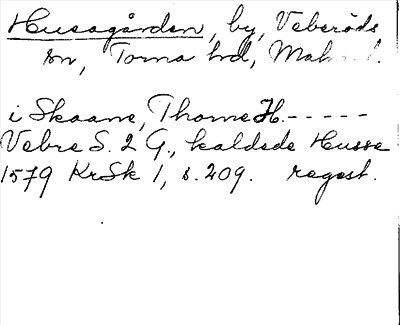 Husagården, by, Veberöds
sn, Torna hd, Malm
i Skaane, Thorne H. - - - - -
Vebre S. 2 G., kaldede Husse
1579 KrSk 1, s. 209. regest.